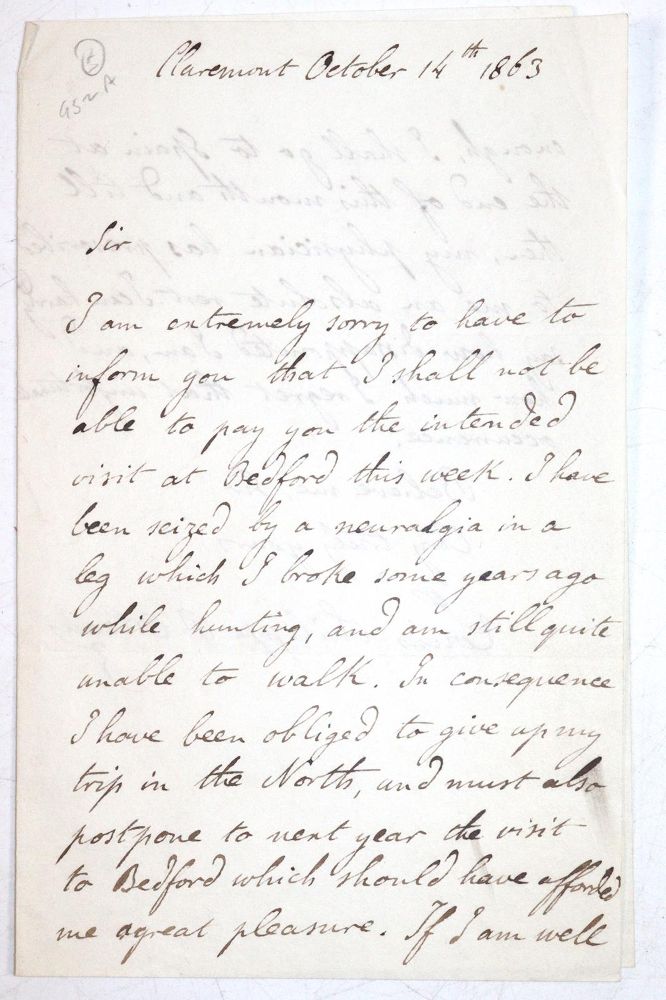 Claremont October 14th 1863
Sir
I am extremely sorry to have to
inform you that I shall not be
able to pay you the intended
visit at Bedford this week. I have
been seized by a neuralgia in a
leg which I broke some years ago
while hunting, and am still quite
unable to walk. In consequence
I have been obliged to give up my
trip in the North, and must also
postpone to next year the visit
to Bedford which should have afforded
me a great pleasure. If I am well